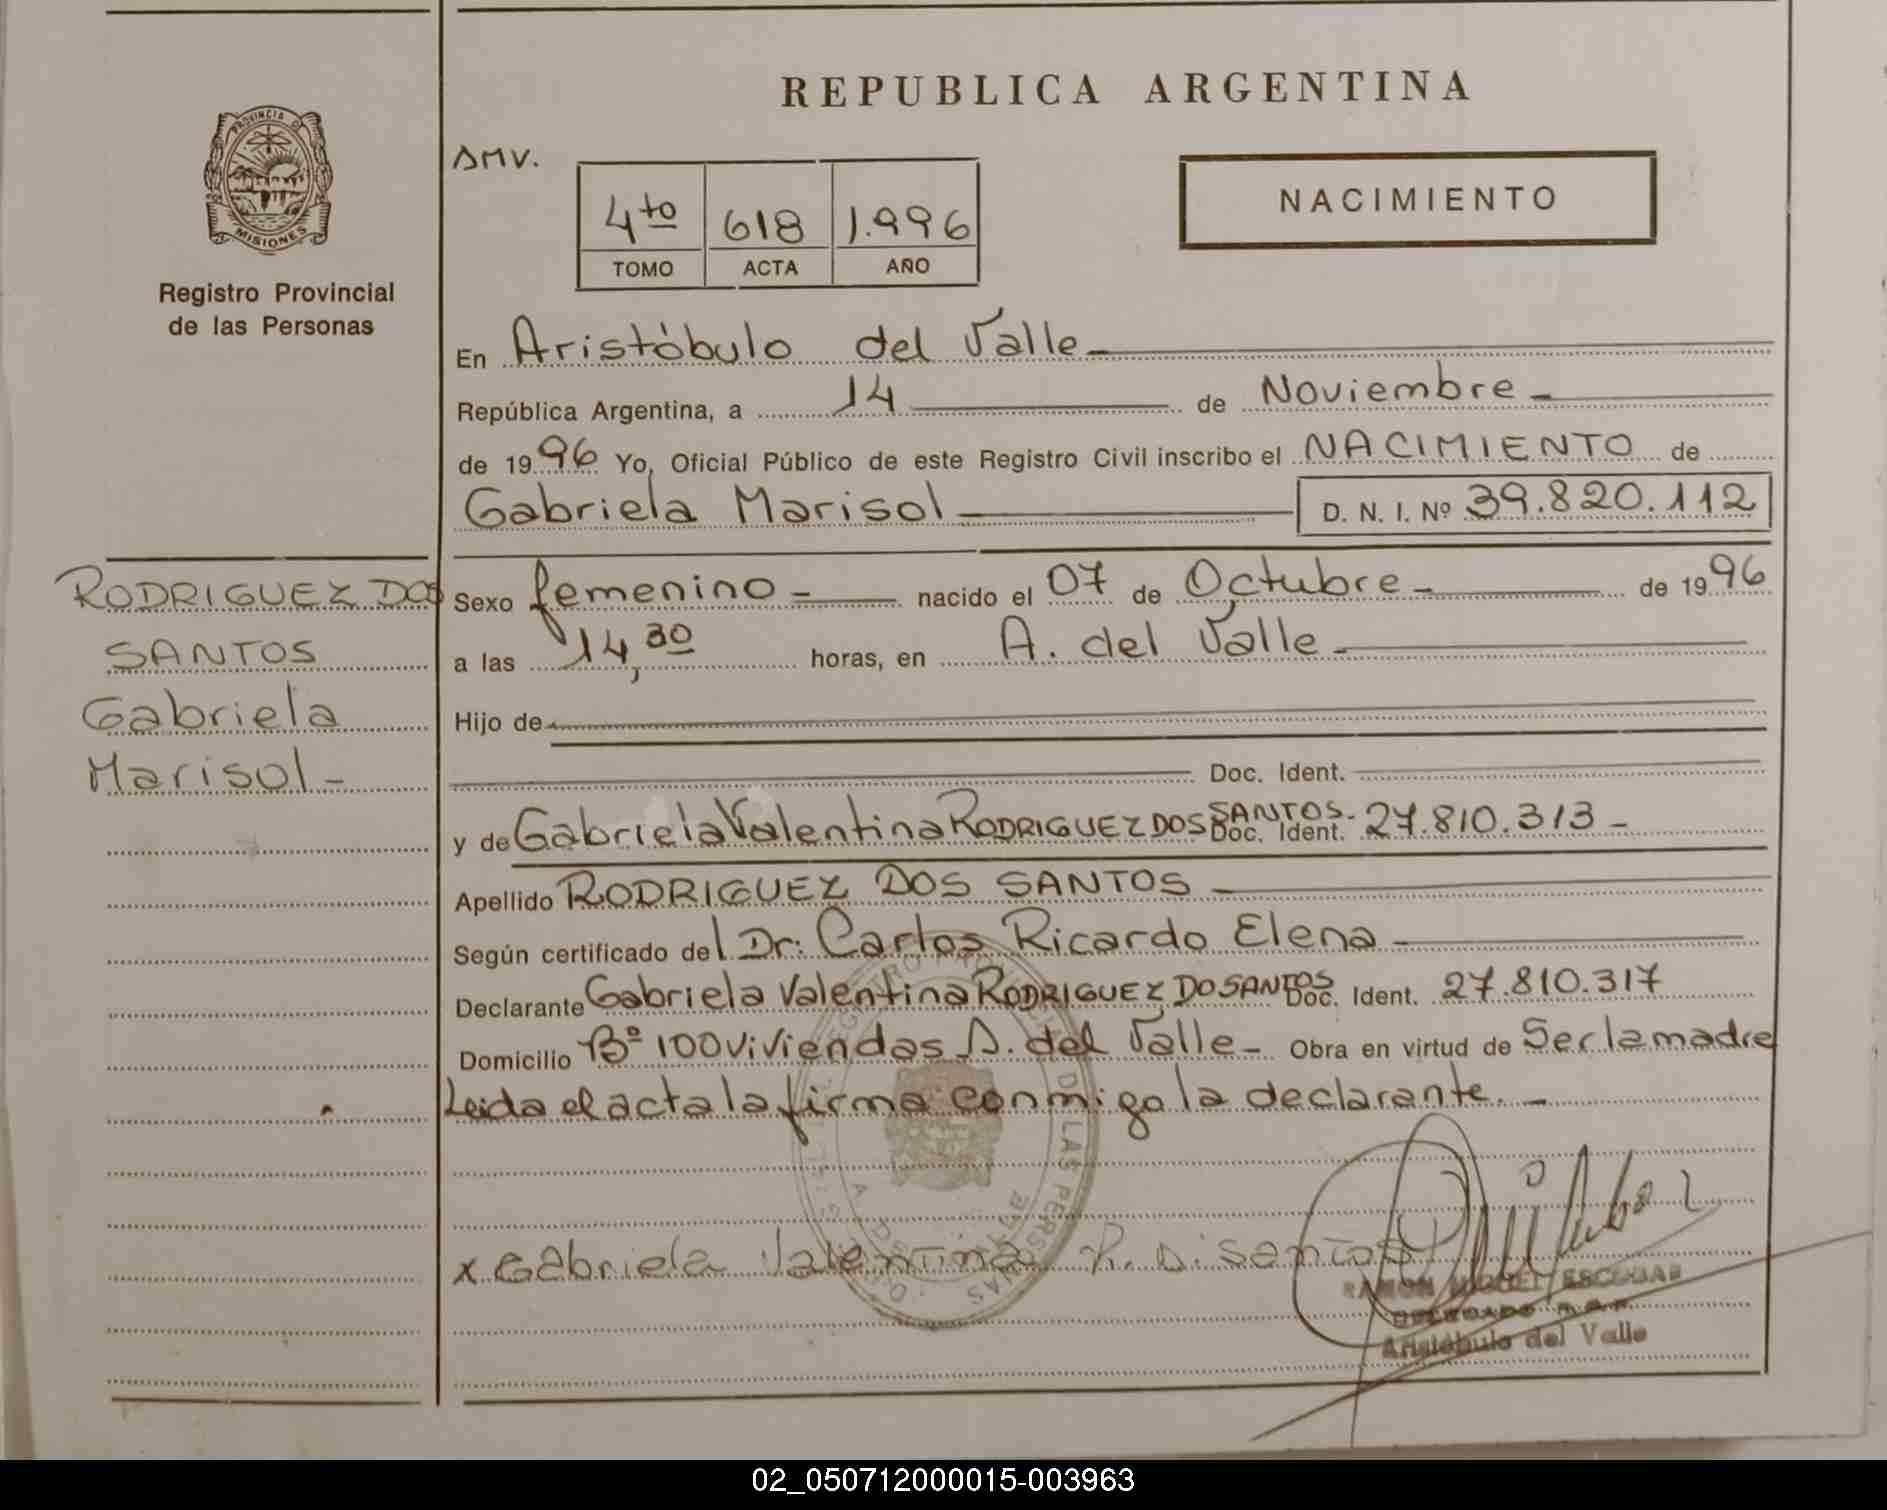 REPUBLICA ARGENTINA
PROVINCIA DE
MISIONES
Registro Provincial
de las Personas
AMV.
4to 618 1.996
TOMO ACTA AÑO
NACIMIENTO
En Aristóbulo del Valle
República Argentina, a 14 de Noviembre
de 1996 Yo, Oficial Público de este Registro Civil inscribo el NACIMIENTO de
Gabriela Marisol D. N. I. Nº 39.820.112
RODRIGUEZ DOS
SANTOS
Gabriela
Marisol-
Sexo femenino nacido el 07 de Octubre de 1996
a las 14,30 horas, en A. del Valle
Hijo de
Doc. Ident.
y de Gabriela Valentina RODRIGUEZ DOS SANTOS- Doc. Ident. 27.810.313-
Apellido RODRIGUEZ DOS SANTOS
Según certificado del Dr: Carlos Ricardo Elena
Declarante Gabriela Valentina RODRIGUEZ DO SANTOS Doc. Ident. 27.810.317
Domicilio Bº 100 viviendas A. del Valle- Obra en virtud de Ser la madre
Leida el acta la firma conmigo la declarante.-
x Gabriela Valentina R. D. Santos
RAMON MIGUEL ESCOBAR
DELEGADO
Aristóbulo del Valle
DE LAS PERSONAS
02_050712000015-003963